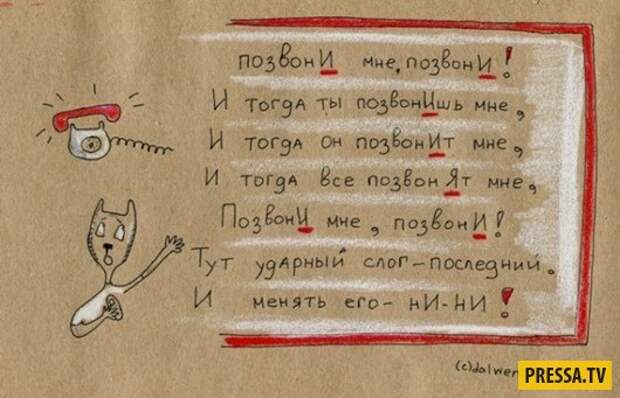 позвонИ мне, позвонИ!
И тогда ты позвонИшь мне,
И тогда он позвонИт мне,
И тогда все позвонЯт мне,
ПозвонИ мне, позвонИ!
Тут ударный слог-последний,
И менять его- нИ-нИ!
PRESSA.TV